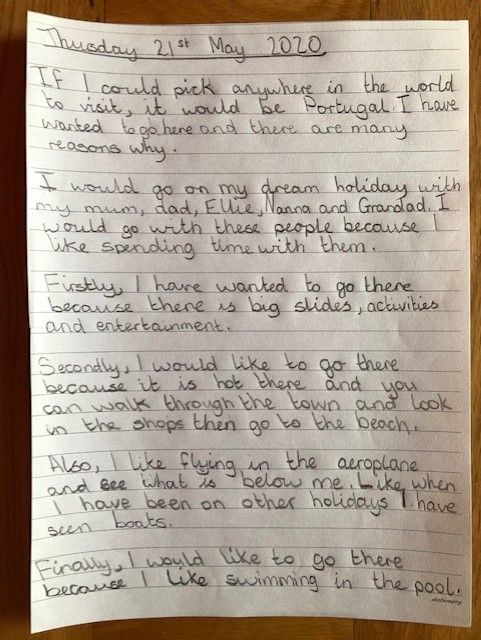 Thursday 21st May 2020
If I could pick anywhere in the world
to visit, it would be Portugal. I have
wanted to go here and there are many
reasons why.
I would go on my dream holiday with
my mum, dad, Ellie, Nanna and Grandad. I
would go with these people because I
like spending time with them.
Firstly, I have wanted to go there
because there is big slides, activities
and entertainment.
Secondly, I would like to go there
because it is hot there and you
can walk through the town and look
in the shops then go to the beach.
Also, I like flying in the aeroplane
and see what is below me. Like when
I have been on other holidays I have
seen boats.
Finally, I would like to go there
because I like swimming in the pool.
stationery